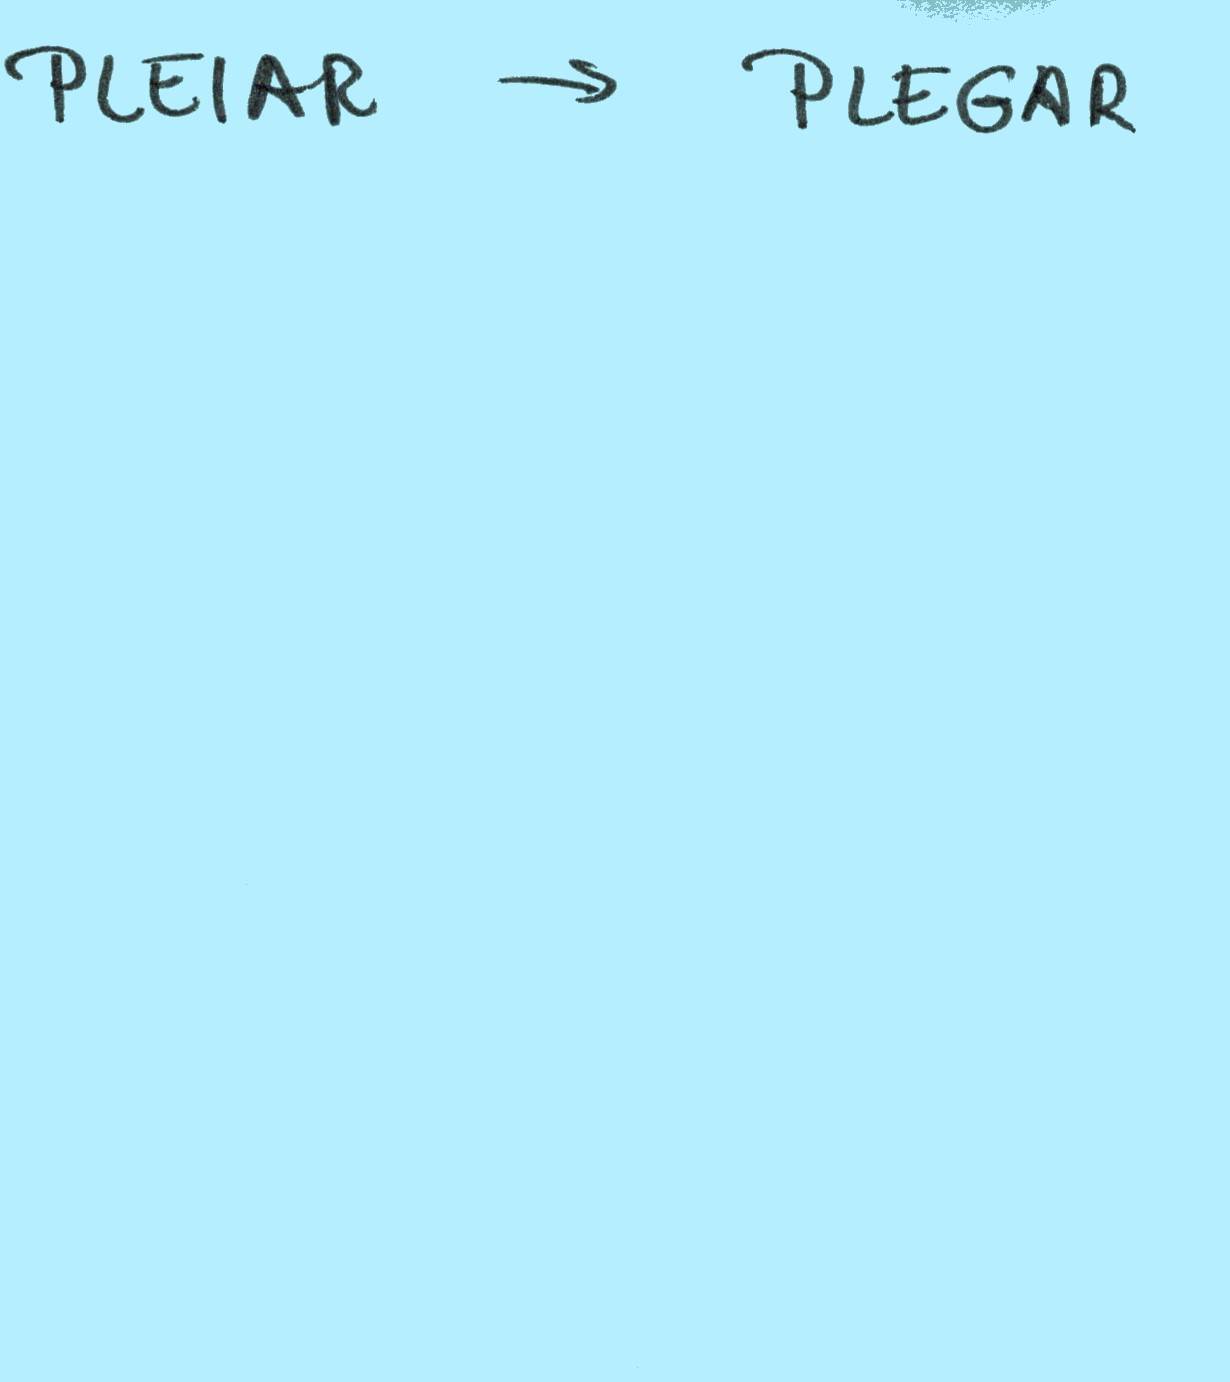 PLEIAR → PLEGAR